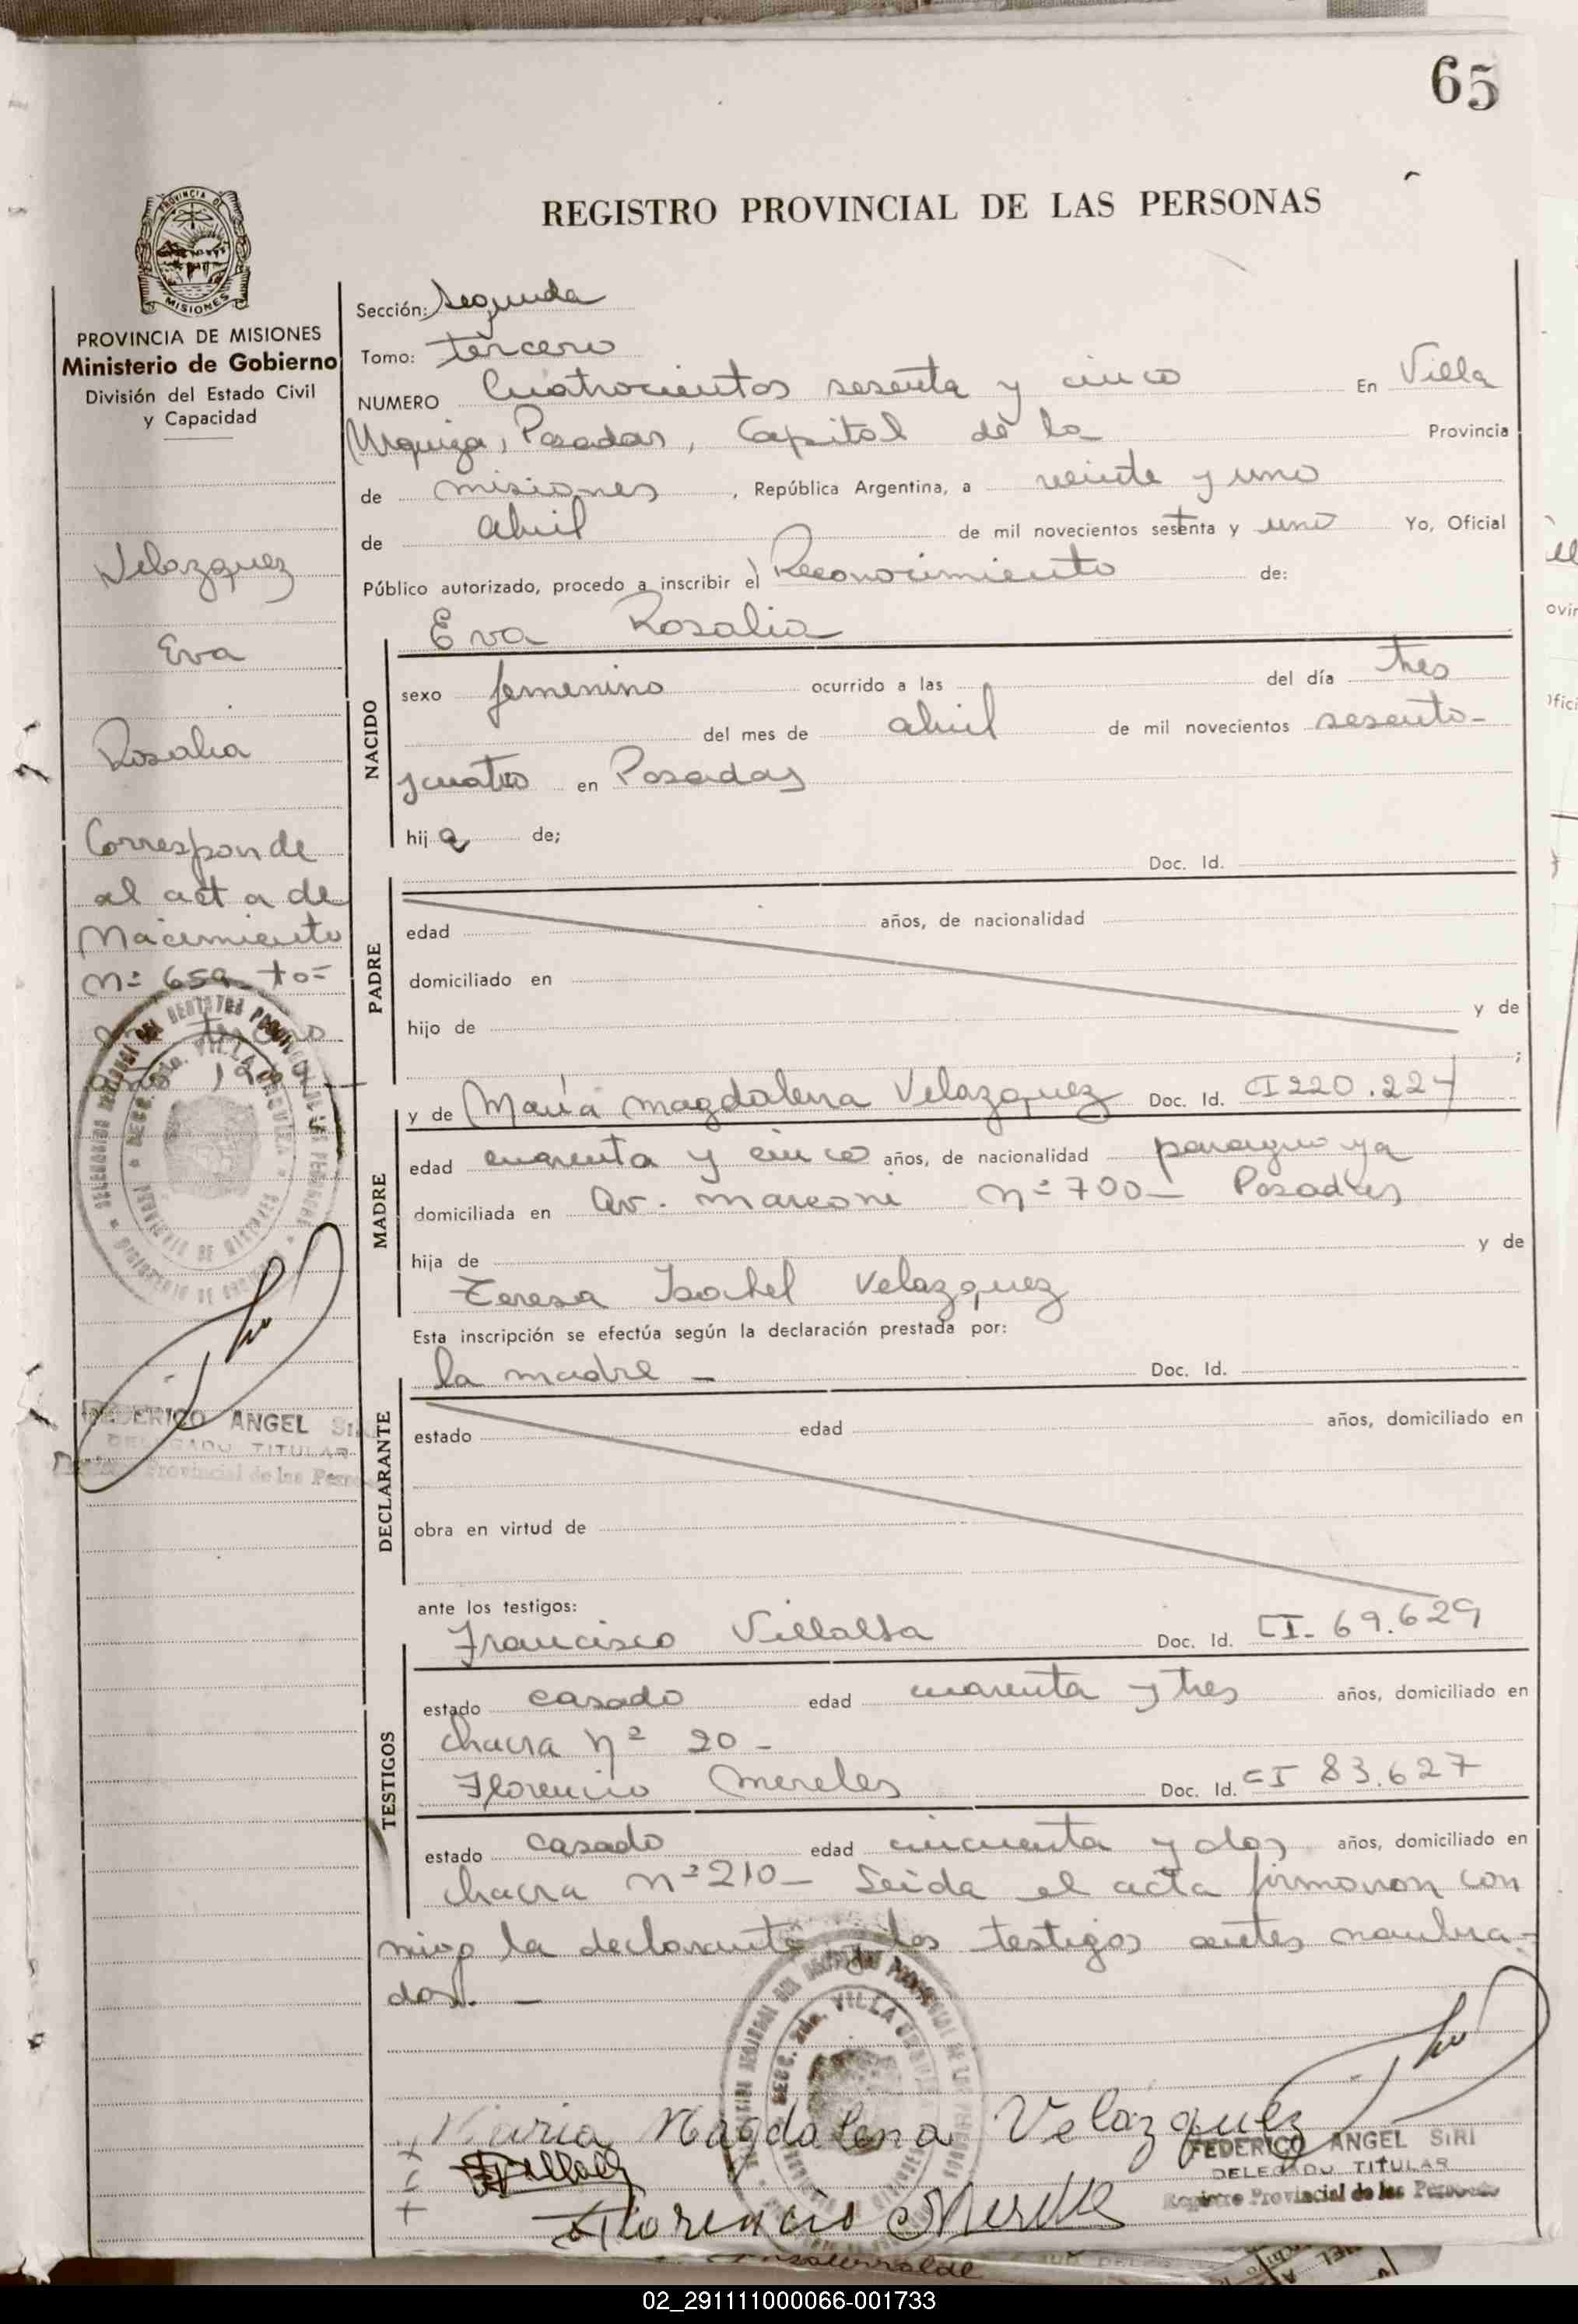 65
REGISTRO PROVINCIAL DE LAS PERSONAS
PROVINCIA DE MISIONES
Ministerio de Gobierno
División del Estado Civil
y Capacidad
Velazquez
Eva
Rosalia
Corresponde
al acta de
Nacimiento
nº 659 to=
Sección: Segunda
Tomo: tercero
NUMERO Cuatrocientos sesenta y cinco En Villa
Urquiza, Posadas, Capital de la Provincia
de misiones, República Argentina, a veinte y uno
de abril de mil novecientos setenta y uno Yo, Oficial
Público autorizado, procedo a inscribir el Reconocimiento de:
Eva Rosalia
NACIDO
sexo femenino ocurrido a las del día tres
del mes de abril de mil novecientos sesenta-
y cuatro en Posadas
hija de;
Doc. Id.
PADRE
edad años, de nacionalidad
domiciliado en
hijo de y de
;
y de María magdalena Velazquez Doc. Id. CI 220.224
MADRE
edad cuarenta y cinco años, de nacionalidad paraguaya
domiciliada en Av. Marconi nº 700- Posadas
hija de y de
Teresa Isabel Velazquez
Esta inscripción se efectúa según la declaración prestada por:
la madre - Doc. Id.
DECLARANTE
estado edad años, domiciliado en
obra en virtud de
ante los testigos:
Francisco Villalba Doc. Id. CI- 69.629
TESTIGOS
estado casado edad cuarenta y tres años, domiciliado en
chacra nº 20-
Florencio Mereles Doc. Id. CI 83.627
estado casado edad cincuenta y dos años, domiciliado en
chacra nº 210- Leida el acta firmaron con
migo la declarante los testigos antes nombra-
dos. -
Maria Magdalena Velazquez
Florencio Mereles
FEDERICO ANGEL SIRI
DELEGADO TITULAR
Registro Provincial de las Personas
FEDERICO ANGEL SIRI
DELEGADO TITULAR
Provincial de las Personas
02_291111000066-001733